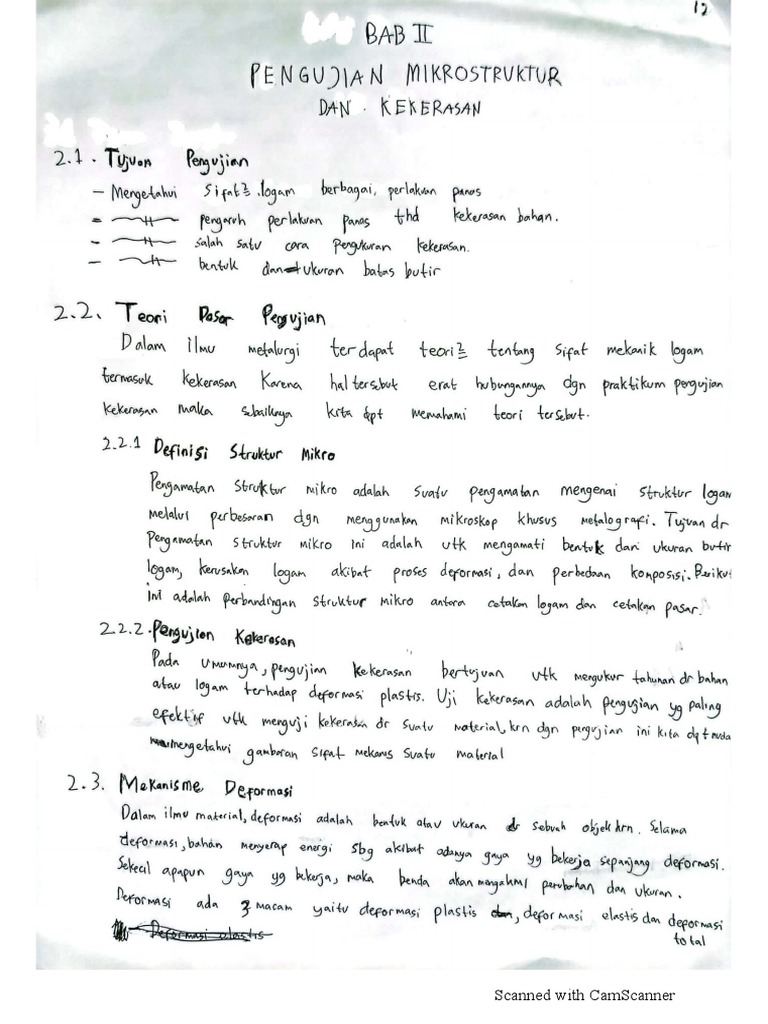 12
BAB II
PENGUJIAN MIKROSTRUKTUR
DAN . KEKERASAN
2.1. Tujuan Pengujian
- Mengetahui Sifat2 logam berbagai, perlakuan panas
- —//— pengaruh perlakuan panas thd kekerasan bahan.
- —//— salah satu cara Pengukuran kekerasan.
- —//— bentuk dan ukuran batas butir
2.2. Teori Dasar Pengujian
Dalam ilmu metalurgi terdapat teori2 tentang Sifat mekanik logam
termasuk kekerasan Karena hal tersebut erat hubungannya dgn praktikum pengujian
kekerasan maka sebaiknya kita dpt memahami teori tersebut.
2.2.1 Definisi Struktur Mikro
Pengamatan Struktur mikro adalah suatu pengamatan mengenai struktur logam
melalui perbesaran dgn menggunakan mikroskop khusus metalografi. Tujuan dr
Pengamatan struktur mikro ini adalah utk mengamati bentuk dan ukuran butir
logam, kerusakan logam akibat proses deformasi, dan perbedaan komposisi. Berikut
ini adalah perbandingan struktur mikro antara cetakan logam dan cetakan pasar.
2.2.2. Pengujian Kekerasan
Pada Umumnya, pengujian kekerasan bertujuan utk mengukur tahanan dr bahan
atau logam terhadap deformasi plastis. Uji kekerasan adalah pengujian yg paling
efektif utk menguji kekerasan dr suatu material, krn dgn pengujian ini kita dpt muda
mengetahui gambaran sifat mekanis suatu material
2.3. Mekanisme Deformasi
Dalam ilmu material, deformasi adalah bentuk atau ukuran dr sebuah objek krn. Selama
deformasi, bahan menyerap energi sbg akibat adanya gaya yg bekerja sepanjang deformasi.
Sekecil apapun gaya yg bekerja, maka benda akan mengalami perubahan dan ukuran.
Deformasi ada 3 macam yaitu deformasi plastis, deformasi elastis dan deformasi
total
Deformasi elastis
Scanned with CamScanner